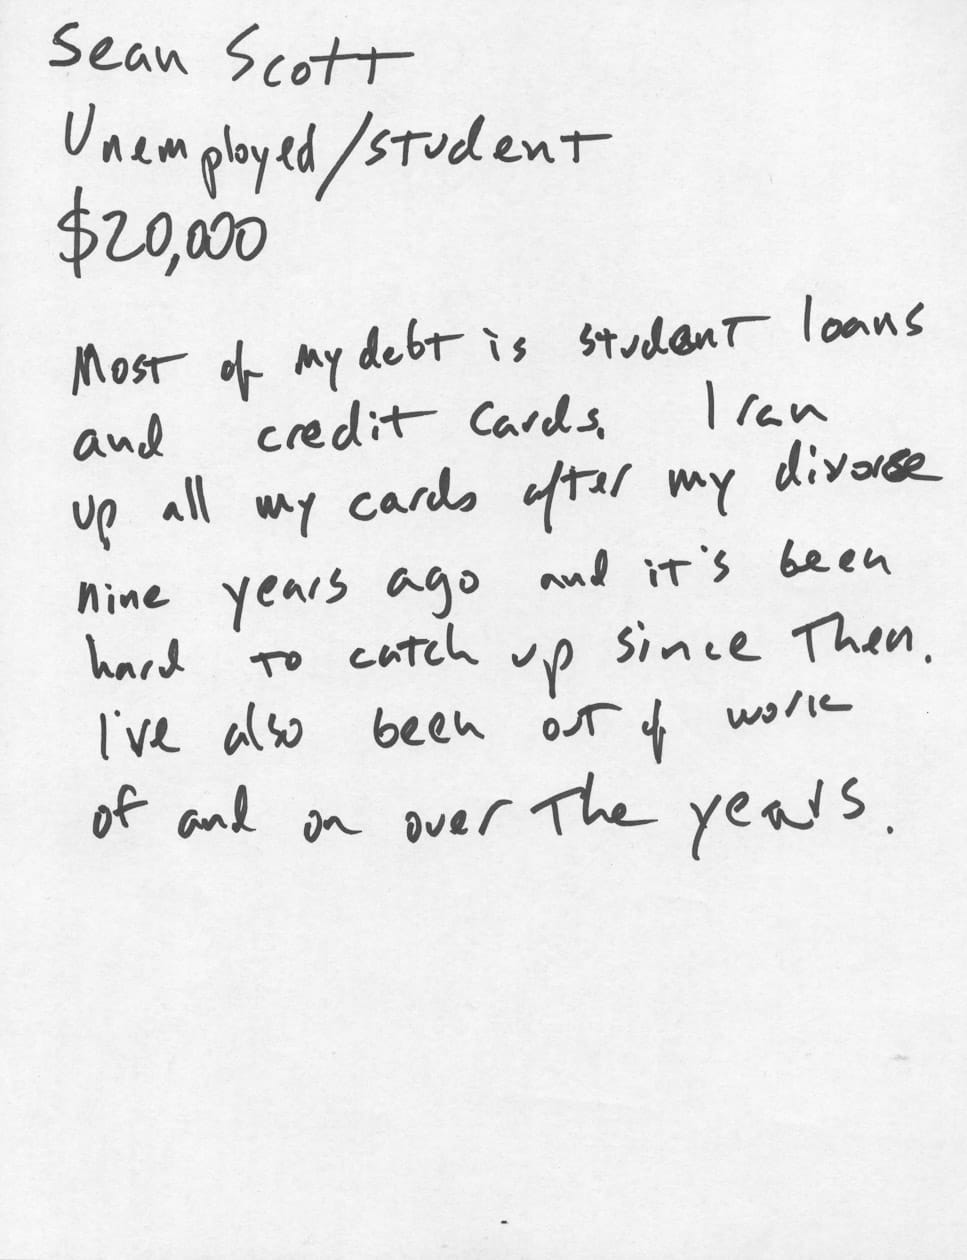 Sean Scott
Unemployed/student
$20,000
Most of my debt is student loans
and credit cards. I ran
up all my cards after my divorse
nine years ago and it's been
hard to catch up since then.
I've also been out of work
of and on over the years.